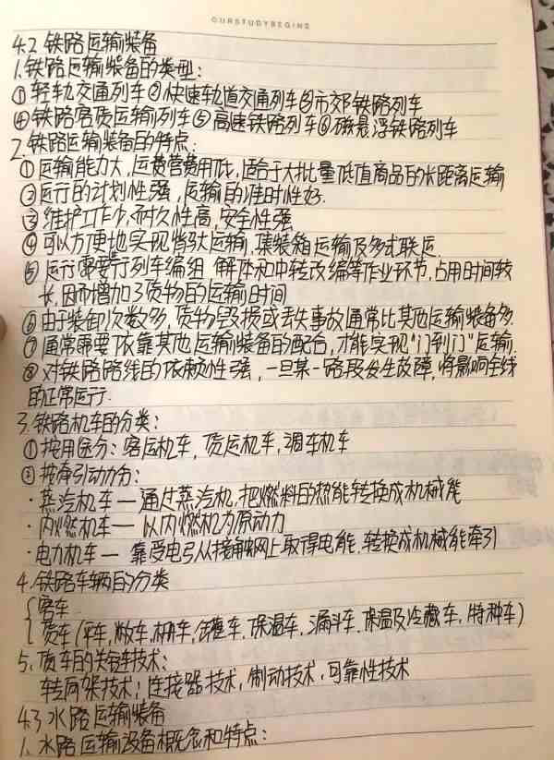 OURSTUDYBEGINS
4.2 铁路运输装备
1.铁路运输装备的类型:
①轻轨交通列车②快速轨道交通列车③市郊铁路列车
④铁路客货运输列车⑤高速铁路列车⑥磁悬浮铁路列车
2.铁路运输装备的特点:
①运输能力大,运费营费用低,适合于大批量低值商品的长距离运输
②运行的计划性强,运输的准时性好.
③维护工作少,耐久性高,安全性强
④可以方便地实现背驮运输,集装箱运输及多式联运.
⑤运行需要行列车编组 解体和中转改编等作业环节,占用时间较
长,因而增加了货物的运输时间
⑥由于装卸次数多,货物毁损或丢失事故通常比其他运输装备多.
⑦通常需要依靠其他运输装备的配合,才能实现"门到门"运输.
⑧对铁路路线的依赖性强,一旦某一路段发生故障,将影响全线
的正常运行.
3.铁路机车的分类:
①按用途分:客运机车,货运机车,调车机车
②按牵引动力分:
·蒸汽机车—通过蒸汽机,把燃料的热能转换成机械能
·内燃机车—以内燃机为原动力
·电力机车—靠受电弓从接触网上取得电能,转换成机械能牵引
4.铁路车辆的分类
客车
货车(平车,敞车,棚车,罐车,保温车,漏斗车,保温及冷藏车,特种车)
5.货车的关键技术:
转向架技术;连接器技术,制动技术,可靠性技术
4.3 水路运输装备
1.水路运输设备概念和特点: